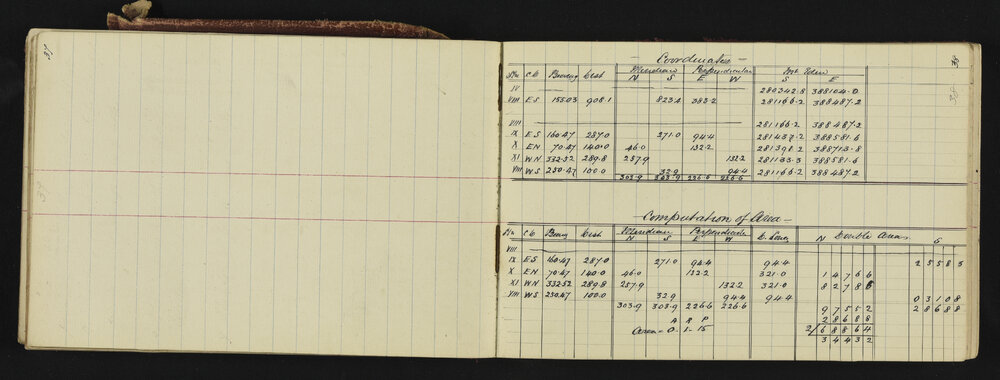 37
38
Coordinates
Stn C.B. Bearing Dist Meridian Perpendicular Mt Eden
N S E W S E
IV 280342.8 388104.0
VIII E S 155.03 908.1 823.4 383.2 281166.2 388487.2
VIII 281166.2 388487.2
IX E S 160.47 287.0 271.0 94.4 281437.2 388581.6
X E N 70.47 140.0 46.0 132.2 281391.2 388713.8
XI W N 332.52 289.8 257.9 132.2 281133.3 388581.6
VIII W S 250.47 100.0 32.9 94.4 281166.2 388487.2
303.9 303.9 226.6 226.6
Computation of Area
Stn C.B. Bearing Dist Meridian Perpendicular Double Areas
N S E W N S
VIII
IX E S 160.47 287.0 271.0 94.4 94.4 25583
X E N 70.47 140.0 46.0 132.2 321.0 14766
XI W N 332.52 289.8 257.9 132.2 321.0 82786
VIII W S 250.47 100.0 32.9 94.4 94.4 03108
303.9 303.9 226.6 226.6 97552 28688
A R P 28688
Area = 0 . 1 . 15 2/68864
34432